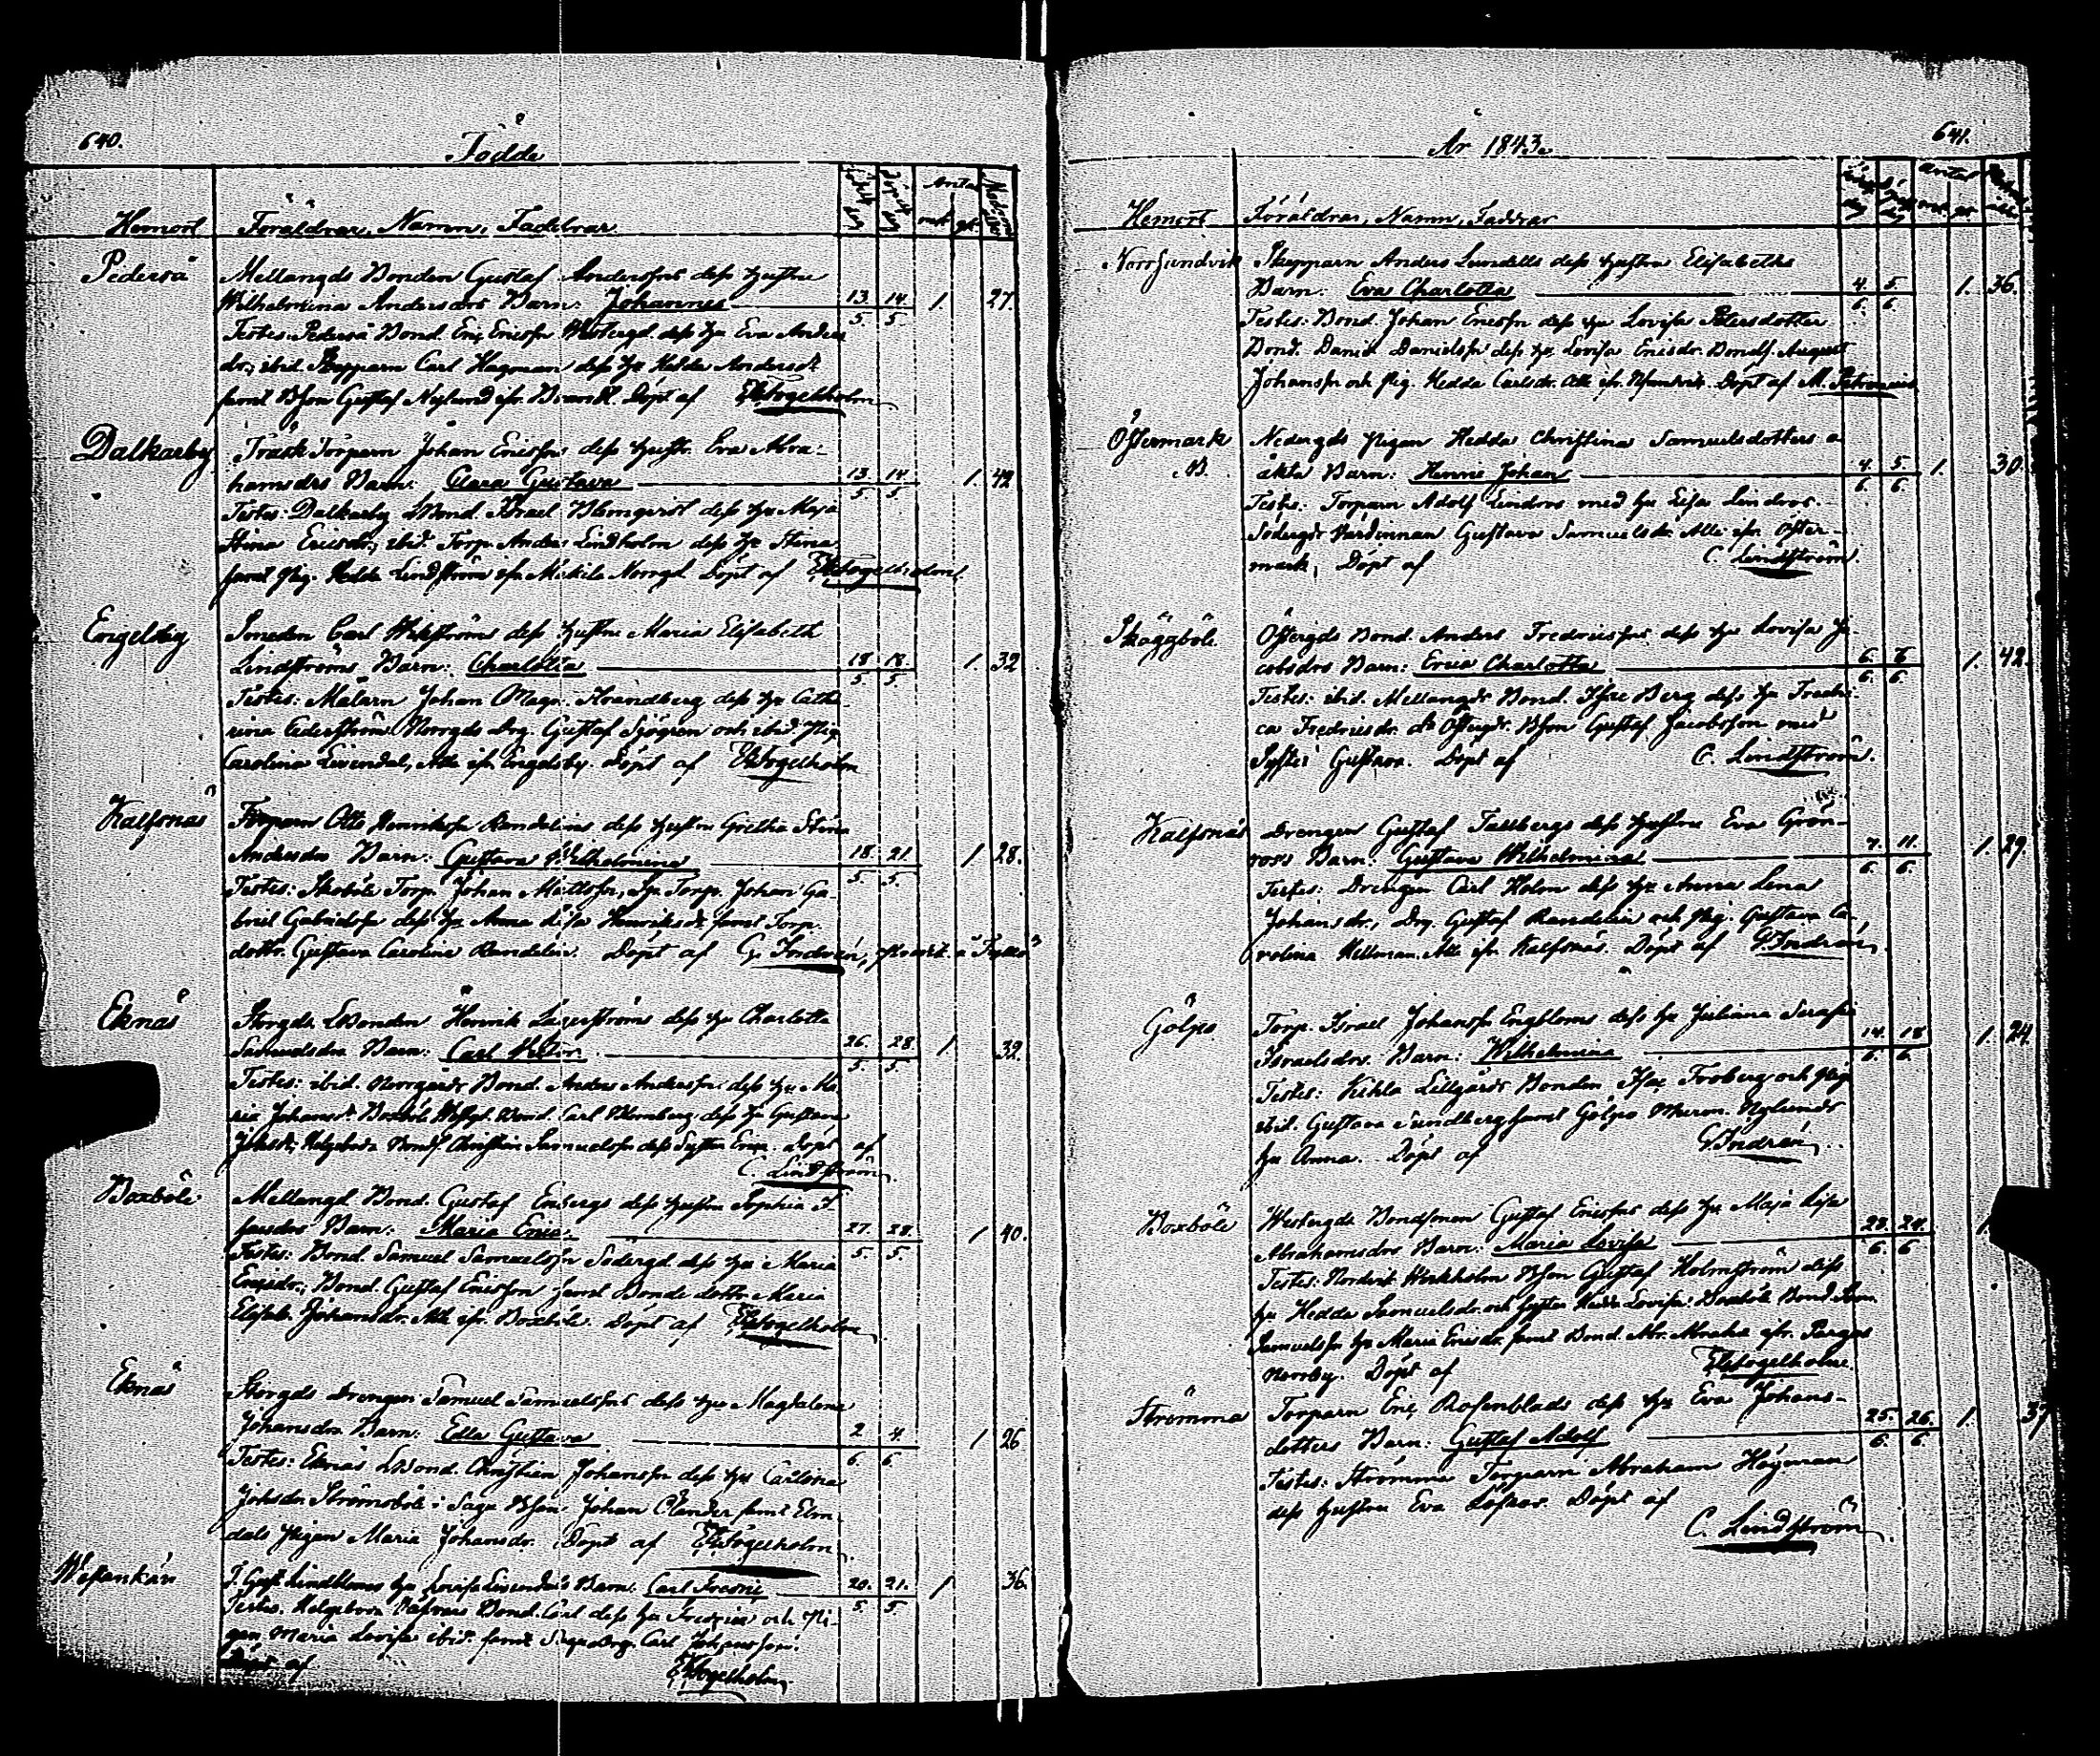 640.
Födde
Hemort Föräldrar, Namn, Faddrar
Födelse dag Döpelse dag Antal mk. qk.
Pederså Mellangds Bonden Gustaf Anderssons dess hustru
Wilhelmina Andersdrs Barn: Johannes 13/5 14/5 1. 27.
Testes: Pederså Bond. Eric Ericsson Westergd. dess hu Eva Anders
dr; ibid. Skepparn Carl Hagman dess hu Hedda Andersdr
samt Bson Gustaf Nylund ifr. Döpt af Fogelholm
Dalkarby Träsk Torparn Johan Ericssons dess hustr. Eva Abra-
hamsdrs Barn: Clara Gustava 13/5 14/5 1. 42
Testes: Dalkarby LBond. Israel Blomqvist dess hu Maja
Stina Ericsdr; ibid. Torp. Anders Lindholm dess hu Stina
samt Pig. Hedda Lindström ifr Mickels Norrgd. Döpt af Fogelholm
Engelsby Smeden Carl Wikströms dess hustru Maria Elisabeth
Lindströms Barn: Charlotta 18/5 18/5 1 32
Testes: Målarn Johan Magn. Strandberg dess hu Catha-
rina Cederström Norrgds Drg. Gustaf Sjögren och ibid. Pig
Carolina Livendal, Alle ifr Engelsby. Döpt af Fogelholm
Kalfsnäs Torparn Otto Henriksson Randelins dess hustru Gretha Stina
Andersdrs Barn: Gustava Wilhelmina 18/5 21/5 1 28.
Testes: Torp. Johan Mattsson, Torp. Johan Ga-
briel Gabrielsson dess hu Anna Lisa Henriksdr samt Torp.
dottr. Gustava Carolina Randelin. Döpt af G. Indrén,
Eknäs Storgds LBonden Henrik Lagerströms dess hu Charlotta
Samuelsdrs Barn: Carl Victor 26/5 28/5 1 32.
Testes: ibid. Norrgårds Bond. Anders Andersson dess hu Ma-
ria Johansdr. Boxböle Bond. Carl Blomberg dess hu Gustava
Johansdr; Helgeboda Bonds. Christian Samuelsson dess Syster Erica. Döpt af
C. Lindström
Boxböle Mellangd. Bond. Gustaf Enbergs dess hustru Sophia I-
saacsdrs Barn: Maria Erica. 27/5 28/5 1 40.
Testes: Bond. Samuel Samuelsson Södergd. dess hu Maria
Ericsdr; Bond. Gustaf Ericsson samt Bonde dottr Maria
Elisab. Johansdr. Alle ifr. Boxböle. Döpt af Fogelholm
Eknäs Storgds Drengen Samuel Samuelssons dess hu Magdalena
Johansdrs Barn: Edla Gustava 2/6 4/6 1 26
Testes: Eknäs LBond. Christian Johansson dess hu Carolina
Johsdr. Strömsböle i Sagu Bson Johan Clander samt Elm-
dals Pigan Maria Johansdr. Döpt af Fogelholm
Westankärr T. Gust. Lindbloms hu Lovisa Livendals Barn: Carl Fredric 20/5 21/5 1 36.
Testes. Helgeboda Bond. Carl dess hu Fredrica och Pi-
gan Maria Lovisa ibid. samt Sagu Drg. Carl Johansson.
Döpt af Fogelholm
641.
År 1843.
Hemort Föräldrar, Namn, Faddrar
Antal
Norrsundvik Skepparn Anders Lundells dess hustru Elisabeths
Barn: Eva Charlotta 4/6 5/6 1. 36.
Testes: Bond. Johan Ericsson dess hu Lovisa Petersdotter
Bond. David Danielsson dess hu Lovisa Ericsdr. Bonds. August
Johansson och Pig. Hedda Carlsdr. Alle ifr. Döpt af M. Petronius
Östermark Nedergds Pigan Hedda Christina Samuelsdotters o-
äkta Barn: Henric Johan 4/6 5/6 1. 30.
Testes: Torparn Adolf Lindros med hu Lisa Lindros.
Södergds Värdinnan Gustava Samuelsdr. Alle ifr. Öster-
mark, Döpt af C. Lindström.
Skäggböle Östergds Bond. Anders Fredricssons dess hu Lovisa Ja-
cobsdrs Barn: Erica Charlotta 6/6 6/6 1. 42.
Testes: ibid. Mellangds Bond. Isac Berg dess hu Fredri-
ca Fredricsdr. Östergds. Bson Gustaf Jacobsson med
Syster Gustava. Döpt af C. Lindström.
Kalfsnäs Drengen Gustaf Tallbergs dess hustru Eva Grön-
roos Barn: Gustava Wilhelmina 7/6 11/6 1. 29.
Testes: Drengen Carl Holm dess hu Anna Lena
Johansdr., Drg. Gustaf Randelin och Pig. Gustava Ca-
rolina Hellman. Alle ifr. Kalfsnäs. Döpt af G. Indrén.
Gölpo Torp. Israel Johansson Engbloms dess hu Juliana Serafia
Israelsdrs Barn: Wilhelmina 14/6 18/6 1. 24.
Testes: Lillgårds Bonden Isac Forsberg och Pig.
ibid. Gustava Sundberg samt Gölpo Murm. Nylunds
hu Anna. Döpt af G. Indrén.
Boxböle Westergds Bondsonen Gustaf Ericssons dess hu Maja Lisa
Abrahamsdrs Barn: Maria Lovisa 23/6 24/6 1
Testes: Nordvik Werkholm Bson Gustaf Holmström dess
hu Hedda Samuelsdr. och Syster Hedda Lovisa. Boxböle Bond. Sam.
Samuelsson hu Maria Ericsdr. samt Bond. Abr. ifr. Pargas
Norrby. Döpt af Fogelholm.
Strömma Torparn Eric Rosenblads dess hu Eva Johans-
dotters Barn: Gustaf Adolf 25/6 26/6 1. 37
Testes: Strömma Torparn Abraham Högman
dess hustru Eva Löfroos. Döpt af
C. Lindström